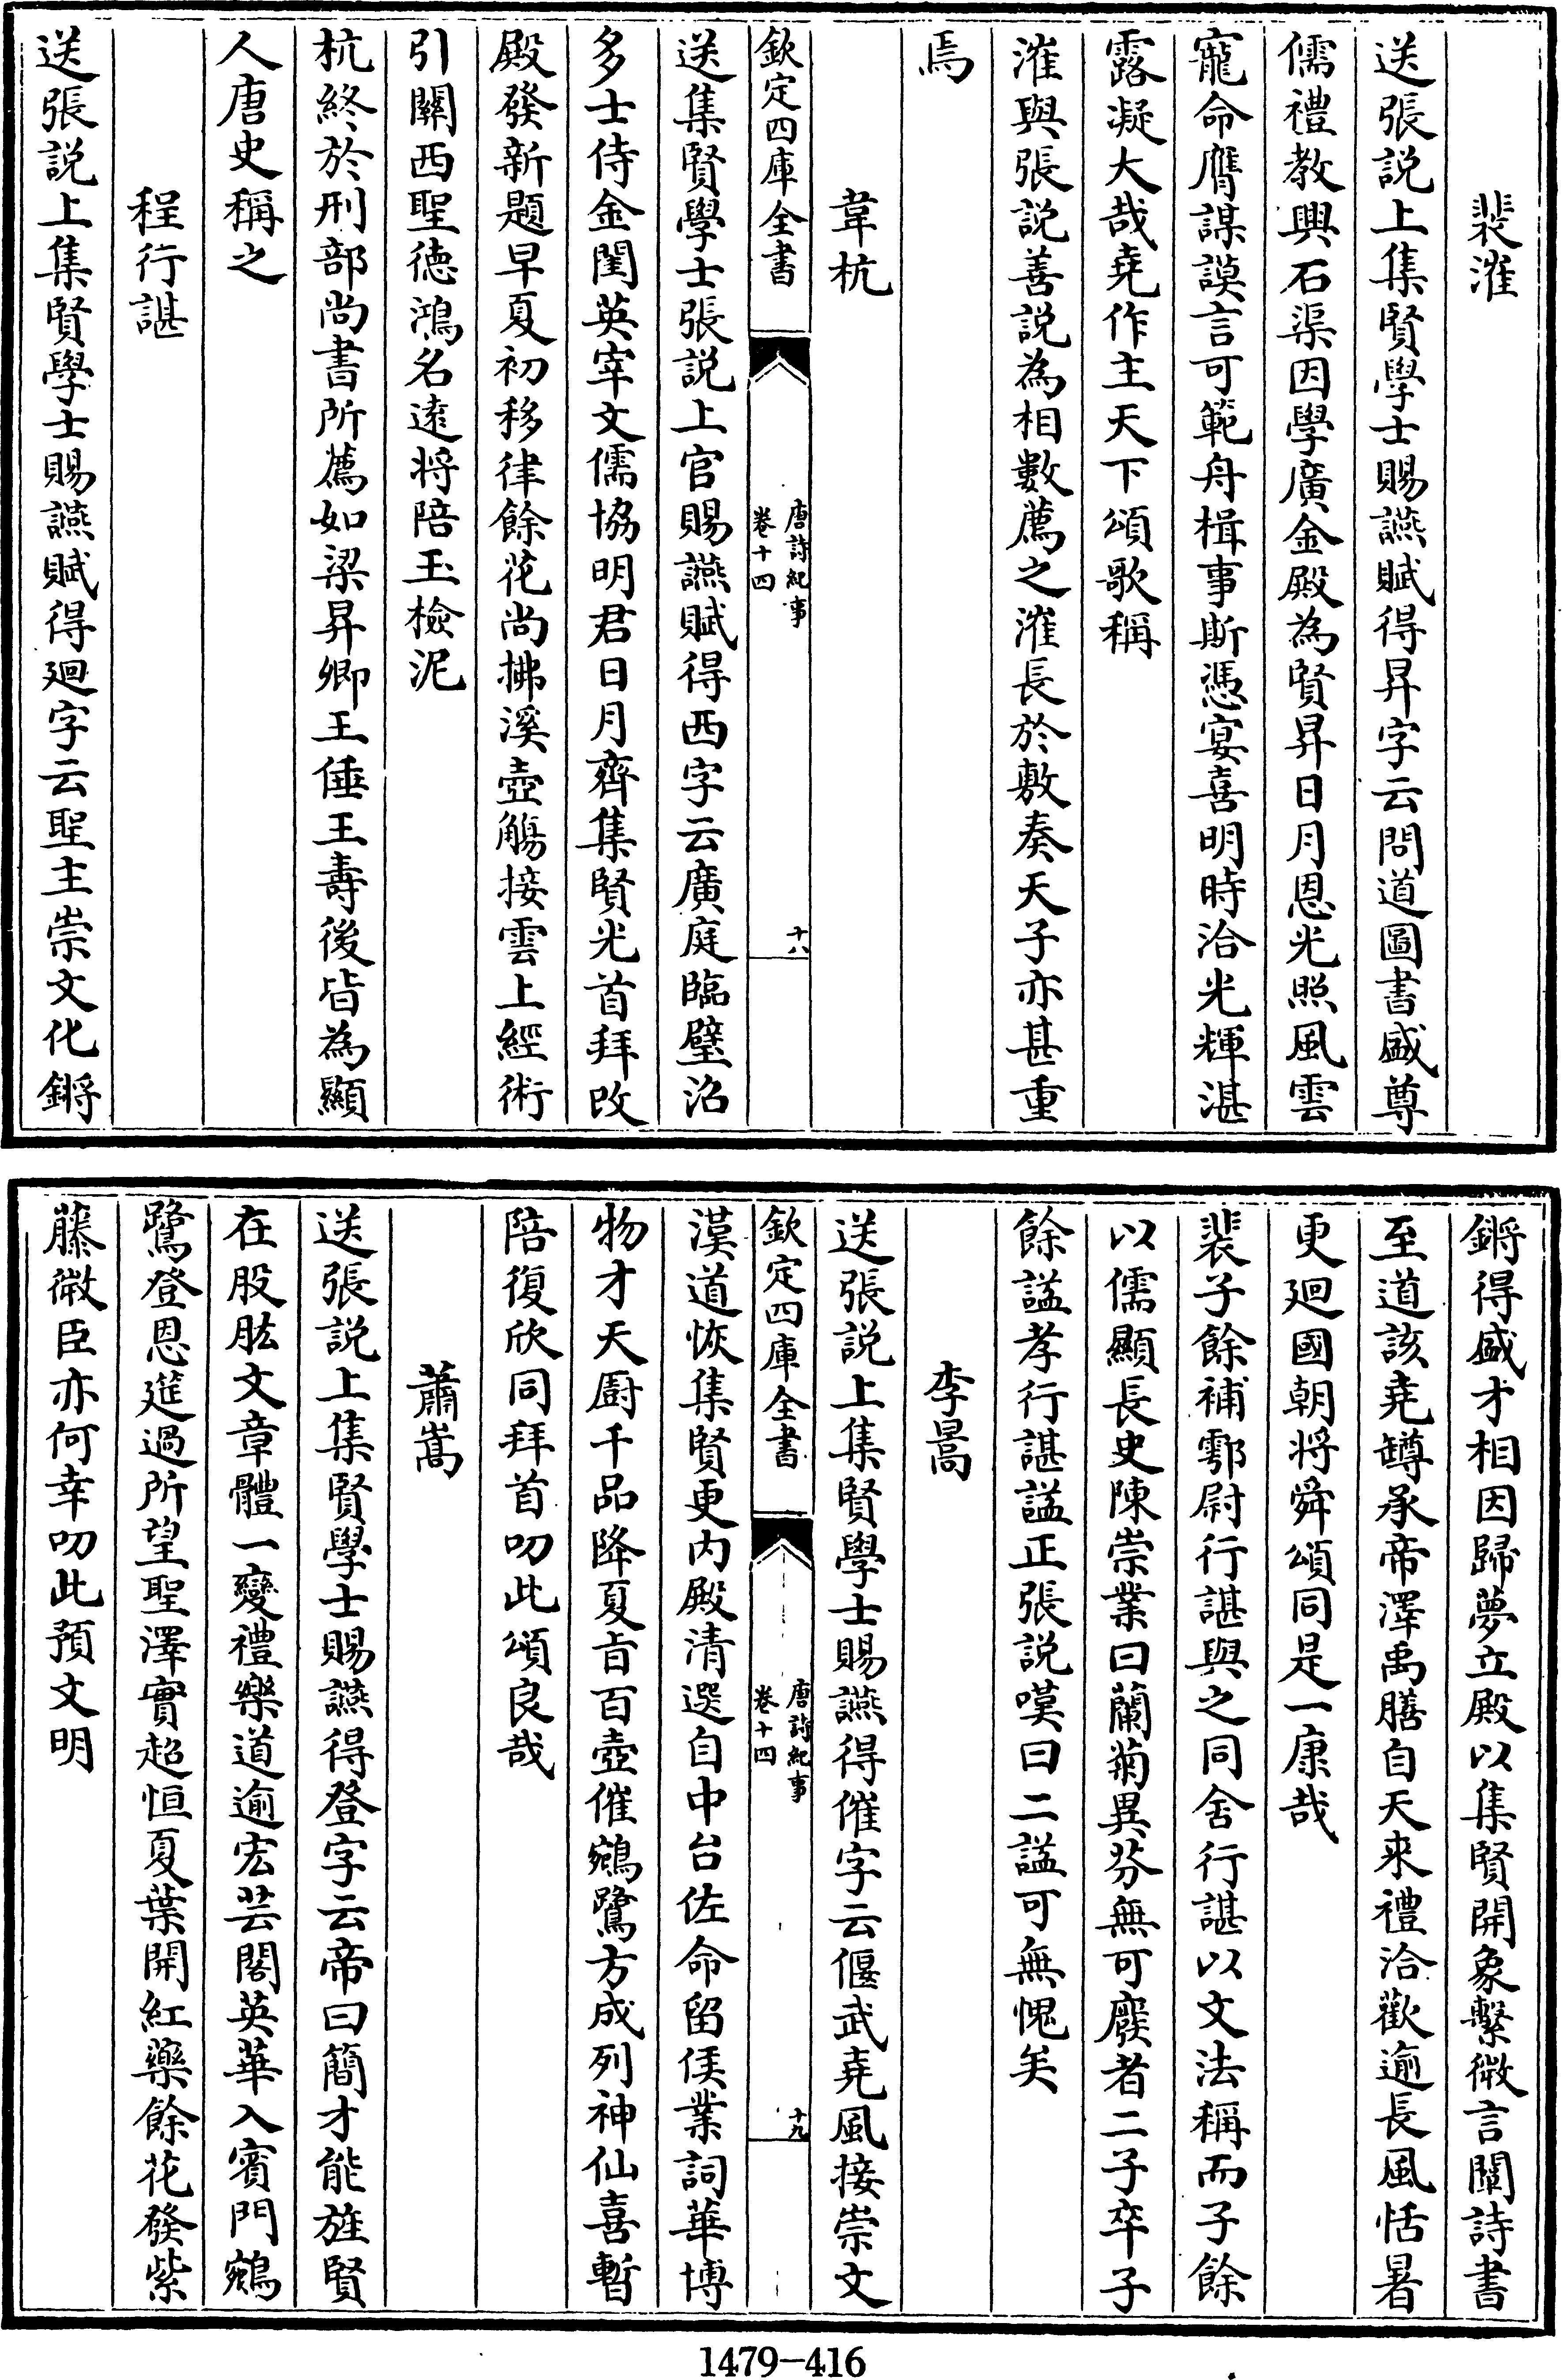 裴漼
送張説上集賢學士賜讌賦得昇字云問道圖書盛尊
儒禮教興石渠因學廣金殿為賢昇日月恩光照風雲
寵命膺謀謨言可範舟楫事斯憑宴喜明時洽光輝湛
露凝大哉堯作主天下頌歌稱
漼與張説善説為相數薦之漼長於敷奏天子亦甚重
焉
韋杭
欽定四庫全書
唐詩紀事
卷十四
十八
送集賢學士張説上官賜讌賦得西字云廣庭臨璧沼
多士侍金閨英宰文儒協明君日月齊集賢光首拜改
殿發新題早夏初移律餘花尚拂溪壺觴接雲上經術
引關西聖德鴻名遠將陪玉檢泥
杭終於刑部尚書所薦如梁昇卿王倕王壽後皆為顯
人唐史稱之
程行諶
送張説上集賢學士賜讌賦得廻字云聖主崇文化鏘
鏘得盛才相因歸夢立殿以集賢開象繫微言闡詩書
至道該堯罇承帝澤禹膳自天來禮洽歡逾長風恬暑
更廻國朝將舜頌同是一康哉
裴子餘補鄠尉行諶與之同舍行諶以文法稱而子餘
以儒顯長史陳崇業曰蘭菊異芬無可廢者二子卒子
餘諡孝行諶諡正張説嘆曰二諡可無愧矣
李暠
送張説上集賢學士賜讌得催字云偃武堯風接崇文
欽定四庫全書
唐詩紀事
卷十四
十九
漢道恢集賢更内殿清選自中台佐命留侯業詞華博
物才天廚千品降夏㫖百壺催鵷鷺方成列神仙喜暫
陪復欣同拜首叨此頌良哉
蕭嵩
送張説上集賢學士賜讌得登字云帝曰簡才能旌賢
在股肱文章體一變禮樂道逾宏芸閣英華入賓門鵷
鷺登恩筵過所望聖澤實超恒夏葉開紅藥餘花發紫
藤微臣亦何幸叨此預文明
1479-416